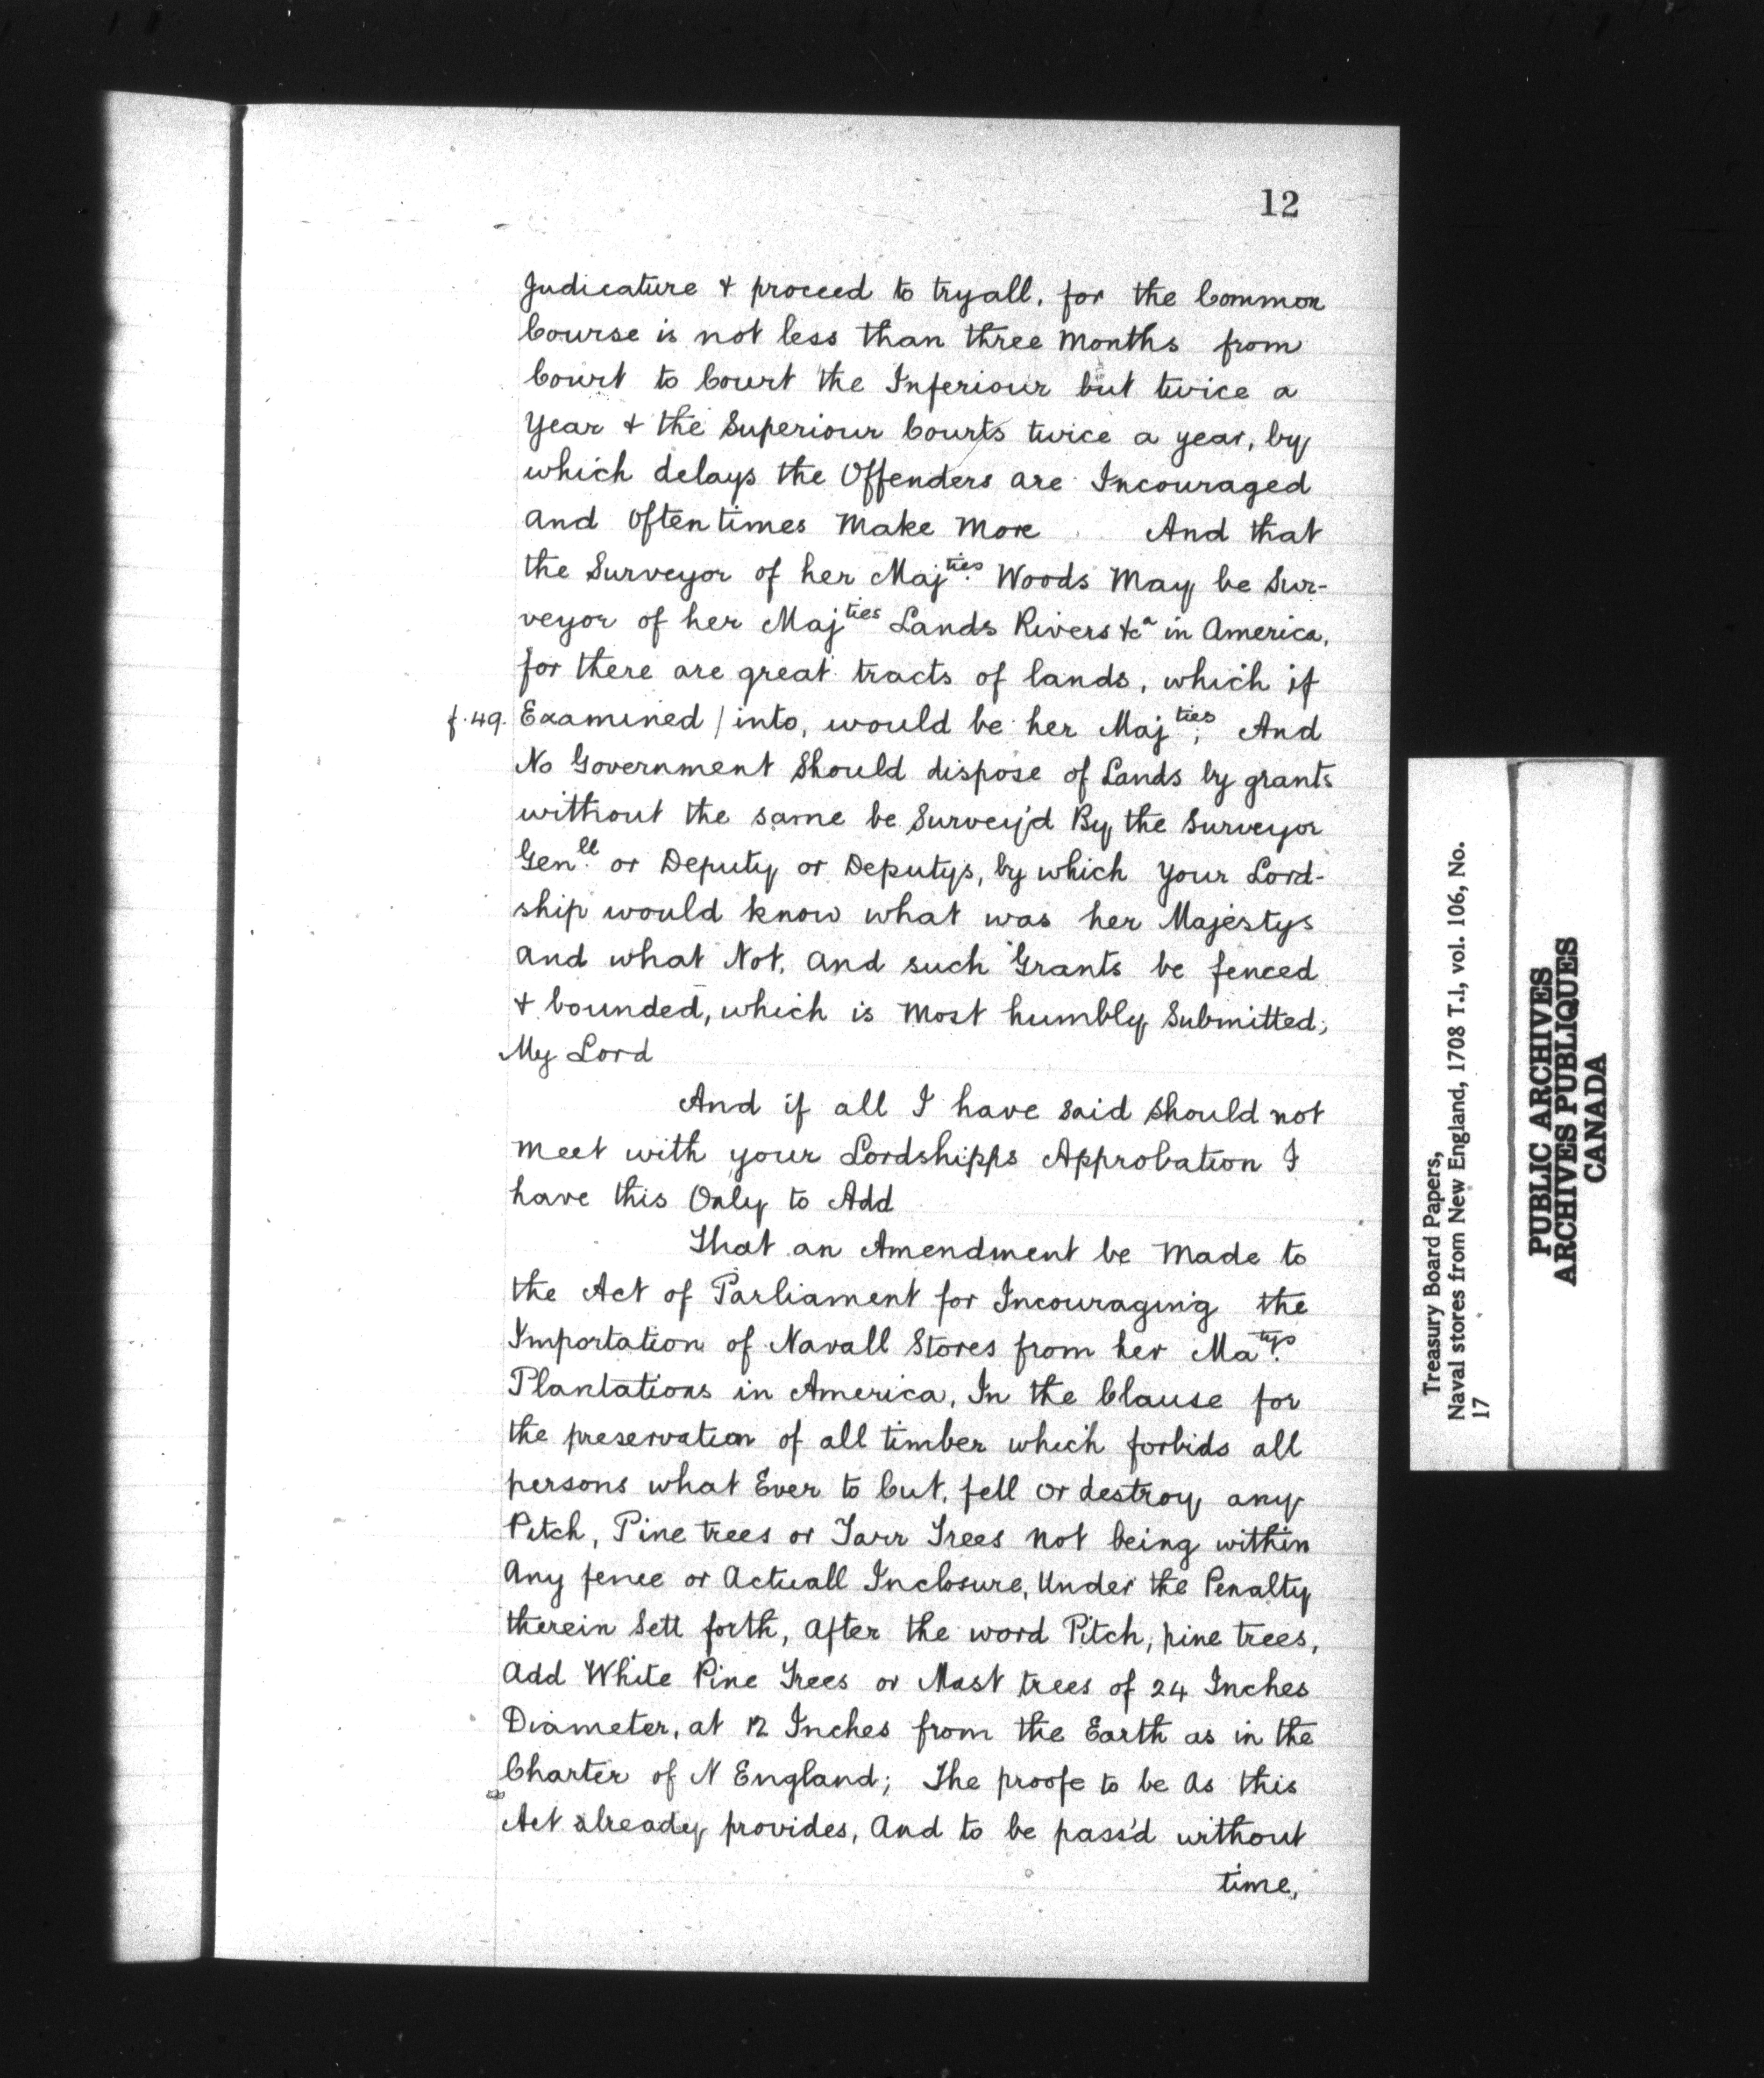 12
Judicature & proceed to tryall, for the Common
Course is not less than three Months from
Court to Court the Inferiour but twice a
Year & the Superiour Courts twice a year, by
which delays the Offenders are Incouraged
and Oftentimes Make More And that
the Surveyor of her Maj^ties. Woods May be Sur-
veyor of her Maj^ties Lands Rivers &c^a in America,
for there are great tracts of lands, which if
f.49. Examined / into, would be her Maj^ties; And
No Government Should dispose of Lands by grants
without the same be Survey'd By the Surveyor
Gen^ll. or Deputy or Deputys, by which Your Lord-
ship would know what was her Majestys
and what Not, And such Grants be fenced
& bounded, which is Most humbly Submitted;
My Lord
And if all I have Said Should not
Meet with your Lordshipps Approbation I
have this Only to Add
That an Amendment be Made to
the Act of Parliament for Incouraging the
Importation of Navall Stores from her Ma^tys.
Plantations in America, In the Clause for
the preservation of all timber which forbids all
persons what Ever to Cut, fell or destroy any
Pitch, Pine trees or Tarr Trees not being within
Any fence or Actuall Inclosure, Under the Penalty
therein Sett forth, After the word Pitch, pine trees,
Add White Pine Trees or Mast trees of 24 Inches
Diameter, at 12 Inches from the Earth as in the
Charter of N England; The proofe to be As this
Act already provides, And to be pass'd without
time,
Treasury Board Papers,
Naval stores from New England, 1708 T.1, vol. 106, No.
17
PUBLIC ARCHIVES
ARCHIVES PUBLIQUES
CANADA